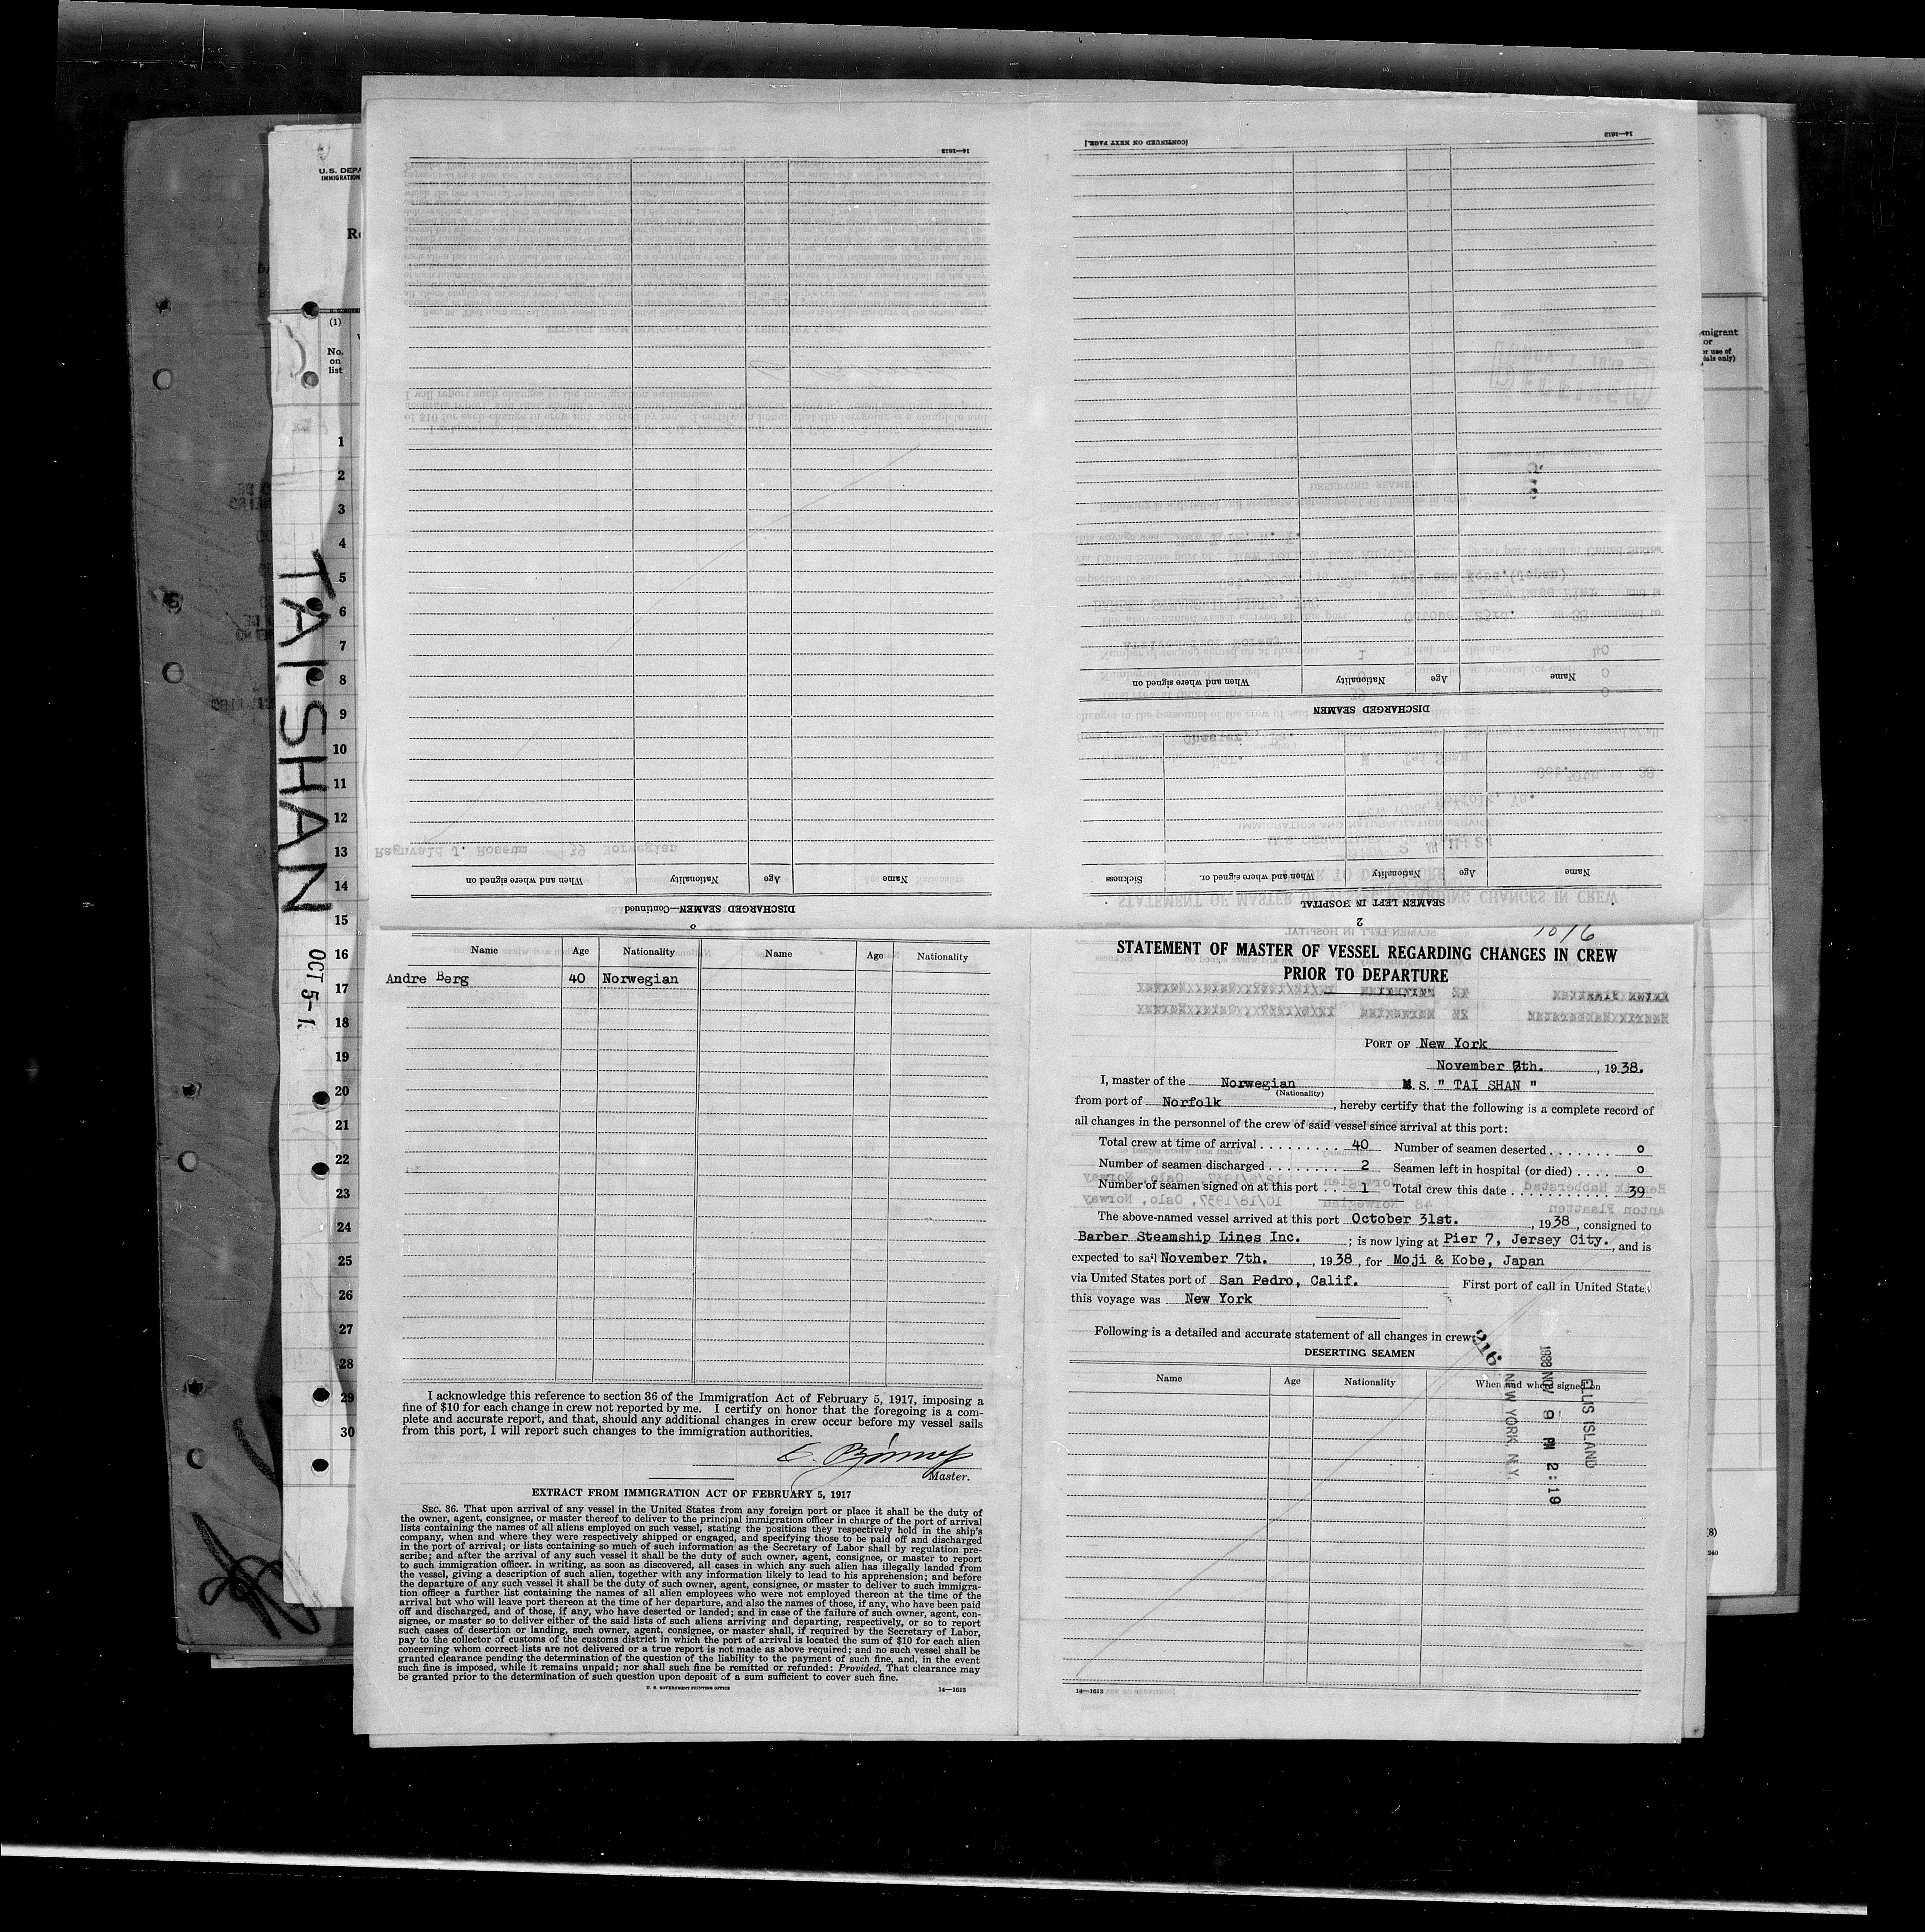 U.S. DEPA
IMMIGRATION
(1)
No.
on
list
1
2
3
4
5
6
7
8
9
10
11
12
13
14
15
16
17
18
19
20
21
22
23
24
25
26
27
28
29
30
TAI SHAN
OCT 5-1
migrant
or
or use of
ials only)
14—1613
When and where signed on
Nationality
Age
Name
DISCHARGED SEAMEN—Continued
3
14—1613
[CONTINUED ON NEXT PAGE.]
When and where signed on
Nationality
Age
Name
DISCHARGED SEAMEN
Sickness
When and where signed or.
Nationality
Age
Name
SEAMEN LEFT IN HOSPITAL
2
Name Age Nationality Name Age Nationality
Andre Berg 40 Norwegian
I acknowledge this reference to section 36 of the Immigration Act of February 5, 1917, imposing a
fine of $10 for each change in crew not reported by me. I certify on honor that the foregoing is a com-
plete and accurate report, and that, should any additional changes in crew occur before my vessel sails
from this port, I will report such changes to the immigration authorities.
Master.
EXTRACT FROM IMMIGRATION ACT OF FEBRUARY 5, 1917
SEC. 36. That upon arrival of any vessel in the United States from any foreign port or place it shall be the duty of
the owner, agent, consignee, or master thereof to deliver to the principal immigration officer in charge of the port of arrival
lists containing the names of all aliens employed on such vessel, stating the positions they respectively hold in the ship's
company, when and where they were respectively shipped or engaged, and specifying those to be paid off and discharged
in the port of arrival; or lists containing so much of such information as the Secretary of Labor shall by regulation pre-
scribe; and after the arrival of any such vessel it shall be the duty of such owner, agent, consignee, or master to report
to such immigration officer. in writing, as soon as discovered, all cases in which any such alien has illegally landed from
the vessel, giving a description of such alien, together with any information likely to lead to his apprehension; and before
the departure of any such vessel it shall be the duty of such owner, agent, consignee, or master to deliver to such immigra-
tion officer a further list containing the names of all alien employees who were not employed thereon at the time of the
arrival but who will leave port thereon at the time of her departure, and also the names of those, if any, who have been paid
off and discharged, and of those, if any, who have deserted or landed; and in case of the failure of such owner, agent, con-
signee, or master so to deliver either of the said lists of such aliens arriving and departing, respectively, or so to report
such cases of desertion or landing, such owner, agent, consignee, or master shall, if required by the Secretary of Labor,
pay to the collector of customs of the customs district in which the port of arrival is located the sum of $10 for each alien
concerning whom correct lists are not delivered or a true report is not made as above required; and no such vessel shall be
granted clearance pending the determination of the question of the liability to the payment of such fine, and, in the event
such fine is imposed, while it remains unpaid; nor shall such fine be remitted or refunded: Provided, That clearance may
be granted prior to the determination of such question upon deposit of a sum sufficient to cover such fine.
U. S. GOVERNMENT PRINTING OFFICE 14—1613
1016
STATEMENT OF MASTER OF VESSEL REGARDING CHANGES IN CREW
PRIOR TO DEPARTURE
PORT OF New York
November 7th. , 1938.
I, master of the Norwegian M.S. " TAI SHAN "
(Nationality)
from port of Norfolk , hereby certify that the following is a complete record of
all changes in the personnel of the crew of said vessel since arrival at this port:
Total crew at time of arrival . . . . . . . . 40 Number of seamen deserted . . . . . . . 0
Number of seamen discharged . . . . . . . . 2 Seamen left in hospital (or died) . . . . 0
Number of seamen signed on at this port . . . 1 Total crew this date . . . . . . . . . . . 39
The above-named vessel arrived at this port October 31st. , 1938, consigned to
Barber Steamship Lines Inc. ; is now lying at Pier 7, Jersey City. , and is
expected to sail November 7th. , 1938, for Moji & Kobe, Japan
via United States port of San Pedro, Calif. First port of call in United States
this voyage was New York
Following is a detailed and accurate statement of all changes in crew:
DESERTING SEAMEN
Name Age Nationality When and where signed on
216
1938 NOV 9 PM 2:19
ELLIS ISLAND
NEW YORK, N.Y.
14—1613
(8)
240